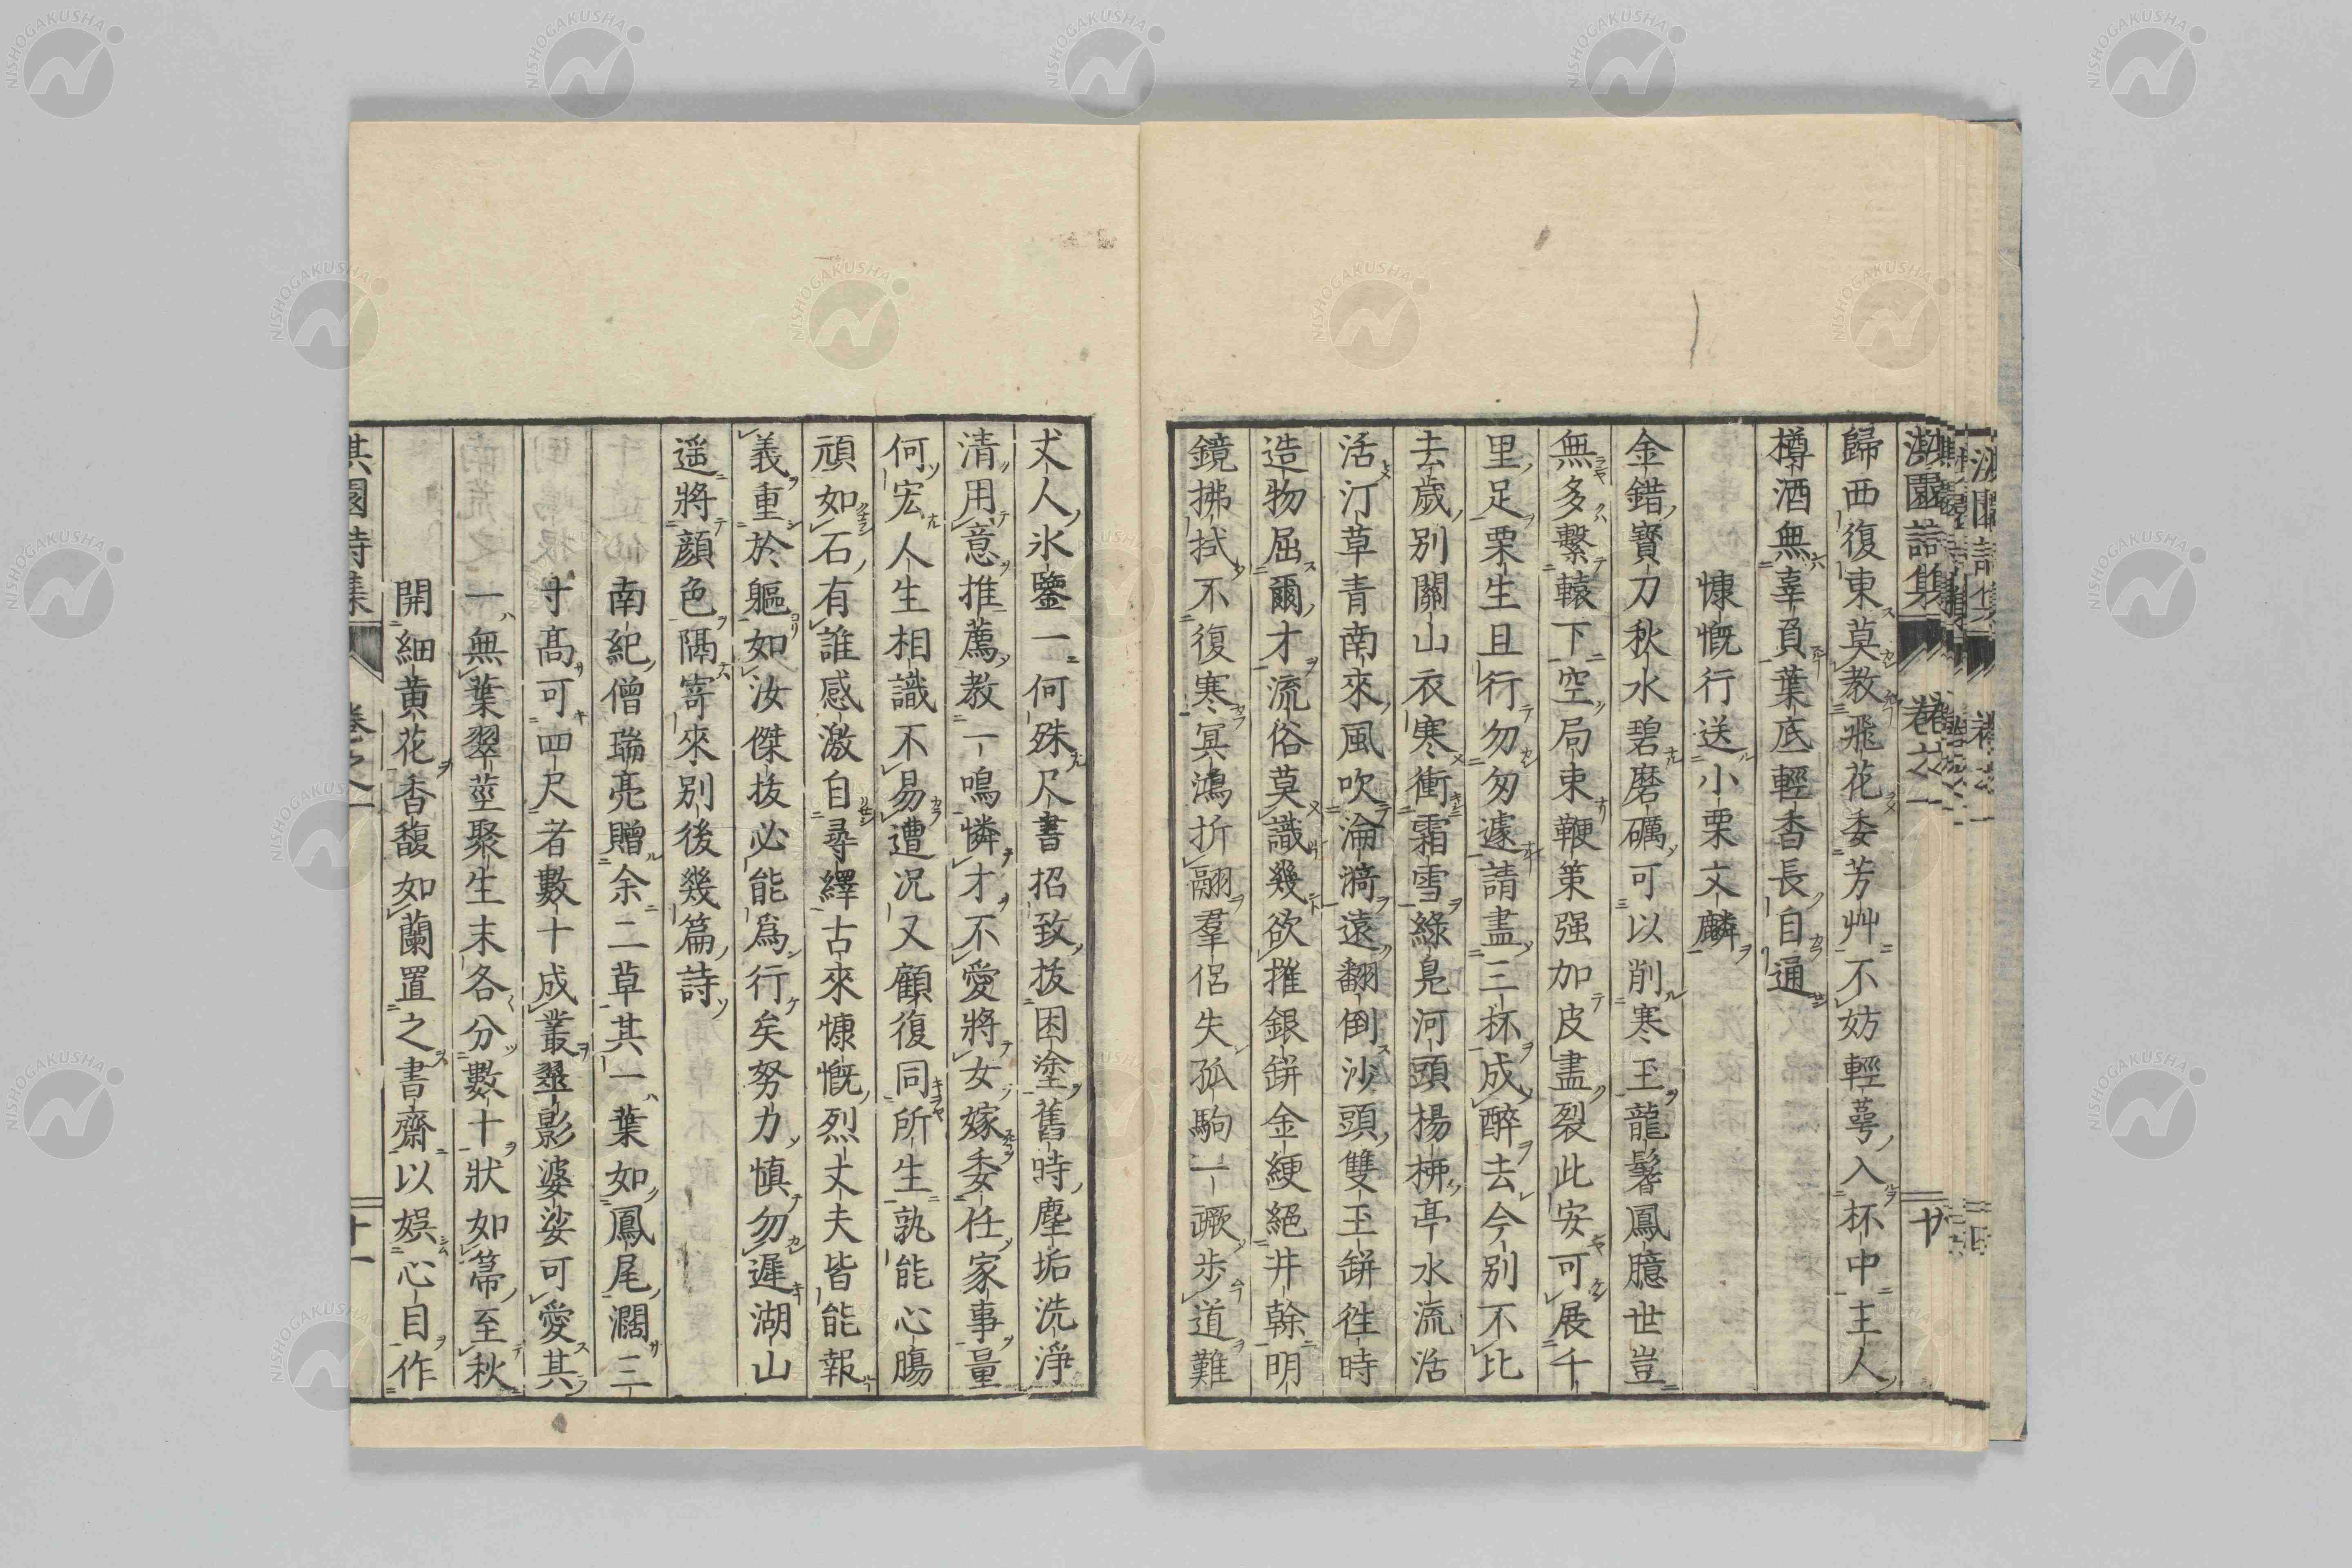 歸西復東莫教飛花委芳艸不妨輕萼入杯中主人
樽酒無辜負葉底輕香長自通
慷慨行送小栗文麟
金錯寶刀秋水碧磨礪可以削寒玉龍髾鳳臆世豈
無多繫轅下空局束鞭策强加皮盡裂此安可展千
里足栗生且行勿匆遽請盡三杯成醉去今別不比
去歲別關山衣寒衝霜雪綠是河頭楊柳亭水流活
活汀草青南來風吹淪漪遠翻倒沙頭雙玉缾徃時
造物屈爾才流俗莫識幾欲摧銀缾金綆絕井幹明
鏡拂拭不復寒冥鴻折翮羣侶失孤駒一蹶步道難
丈人氷鑒一何殊尺書招致拔困塗舊時塵垢洗淨
清用意推薦教一鳴憐才不愛將女嫁委任家事量
何宏人生相識不易遭况又顧復同所生孰能心膓
頑如石有誰感激自尋繹古來慷慨烈丈夫皆能報
義重於軀如汝傑拔必能爲行矣努力愼勿遲湖山
遥將顏色隔寄來別後幾篇詩
南紀僧瑞亮贈余二草其一葉如鳳尾濶三
寸高可四尺者數十成叢翠影婆娑可愛其
一無葉翠莖聚生末各分數十狀如箒至秋
開細黄花香馥如蘭置之書齋以娯心目作
淇園詩集 卷之一 十
淇園詩集 卷之一 十一
NISHOGAKUSHA